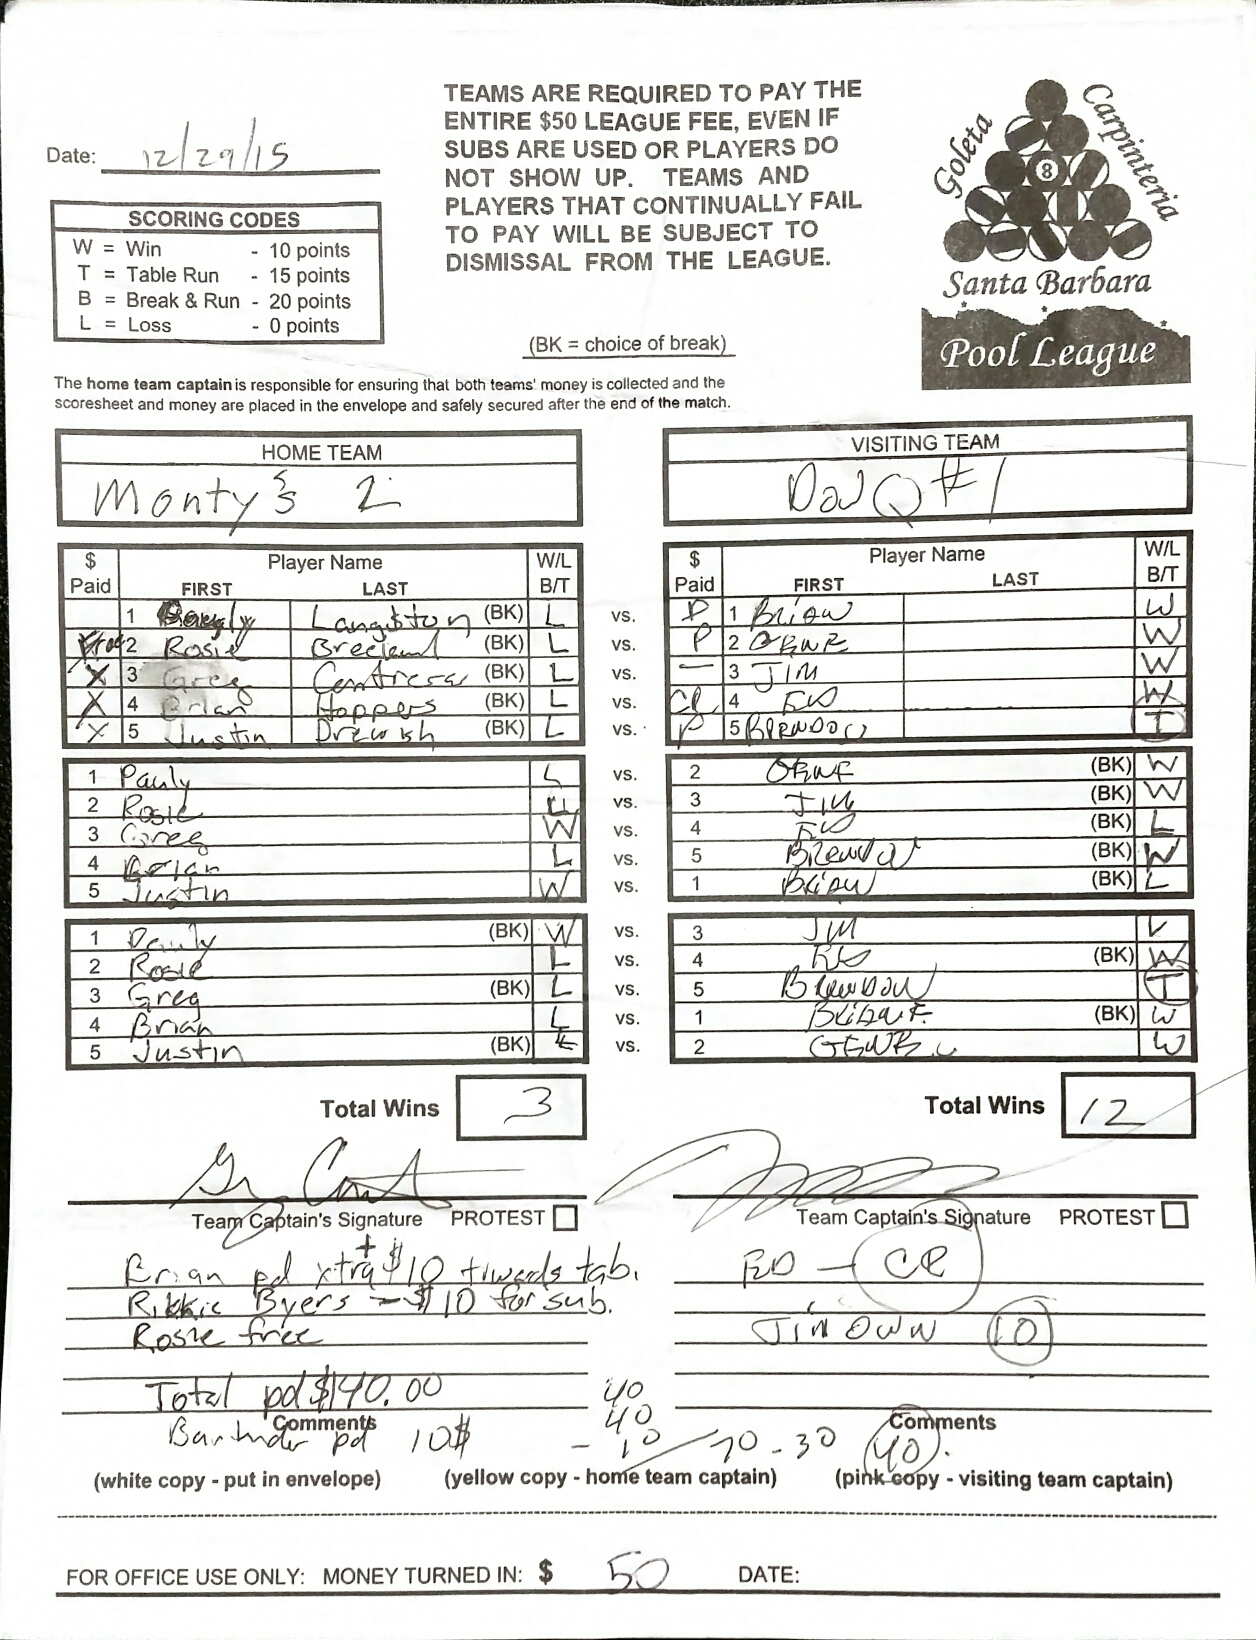 Date: 12/29/15
TEAMS ARE REQUIRED TO PAY THE
ENTIRE $50 LEAGUE FEE, EVEN IF
SUBS ARE USED OR PLAYERS DO
NOT SHOW UP. TEAMS AND
PLAYERS THAT CONTINUALLY FAIL
TO PAY WILL BE SUBJECT TO
DISMISSAL FROM THE LEAGUE.
Goleta
Carpinteria
8
Santa Barbara
Pool League
SCORING CODES
W = Win - 10 points
T = Table Run - 15 points
B = Break & Run - 20 points
L = Loss - 0 points
(BK = choice of break)
The home team captain is responsible for ensuring that both teams' money is collected and the
scoresheet and money are placed in the envelope and safely secured after the end of the match.
HOME TEAM
Monty's 2
VISTING TEAM
Dow Q #1
$ Paid Player Name FIRST LAST W/L B/T
1 Langston (BK) L vs. P 1 Brian W
2 Rosie Breeland (BK) L vs. P 2 W
X 3 Greg Contreras (BK) L vs. — 3 JIM W
X 4 Brian Hoppers (BK) L vs. 4 ED W
X 5 Justin (BK) L vs. P 5 T
1 Pauly L vs. 2 (BK) W
2 Rosie L vs. 3 JIM (BK) W
3 Greg W vs. 4 ED (BK) L
4 Brian L vs. 5 Brendon (BK) W
5 Justin W vs. 1 Brian (BK) L
1 Pauly (BK) W vs. 3 JIM L
2 Rosie L vs. 4 ED (BK) W
3 Greg (BK) L vs. 5 Brendon T
4 Brian L vs. 1 (BK) W
5 Justin (BK) L vs. 2 W
Total Wins 3
Total Wins 12
Team Captain's Signature PROTEST
Team Captain's Signature PROTEST
Brian pd xtra + $10 towards tab.
Rikkie Byers - $10 for sub.
Rosie free
Total pd $140.00
Comments
Bartnder pd 10$
ED - CR
JIM OWN 10
40
40
- 10 70 - 30 40
Comments
(white copy - put in envelope) (yellow copy - home team captain) (pink copy - visiting team captain)
FOR OFFICE USE ONLY: MONEY TURNED IN: $ 50 DATE: